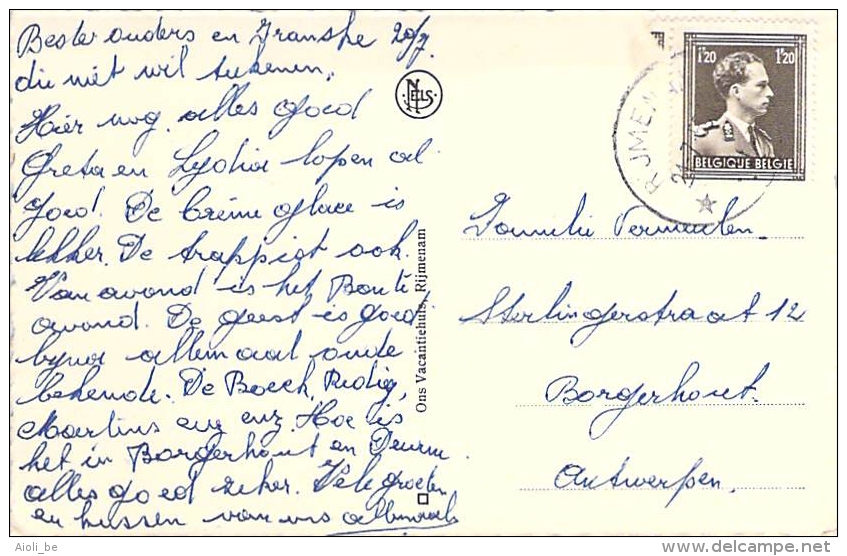 Beste ouders en Franske 20/7
die niet wil tekenen,
Hier nog alles goed
Greta en Lydia lopen al
goed. De crème glace is
lekker. De trappist ook.
Van avond is het Bonte
avond. De geest is goed,
byna allemaal oude
bekende. De Boeck, Redig,
Maertens enz enz. Hoe is
het in Borgerhout en Deurne
alles goed zeker. Vele groeten
en kussen van ons allemaal
NELS
Ons Vacantiehuis, Rijmenam
RIJMEN
1'20 1'20
BELGIQUE BELGIE
Familie Vermeulen
Sterlingerstraat 12
Borgerhout.
Antwerpen.
Aioli_be
delcampe.net